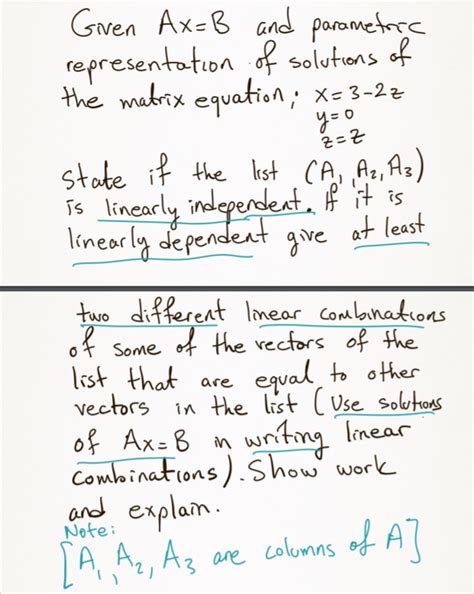 Given Ax=B and parametric
representation of solutions of
the matrix equation; x=3-2z
y=0
z=z
State if the list (A₁, A₂, A₃)
is linearly independent. If it is
linearly dependent give at least
two different linear combinations
of some of the vectors of the
list that are equal to other
vectors in the list (Use solutions
of Ax=B in writing linear
combinations). Show work
and explain.
Note:
[A₁, A₂, A₃ are columns of A]